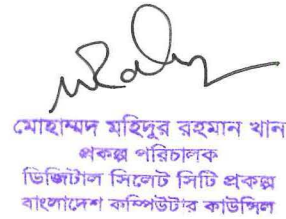 মোহাম্মদ মহিদুর রহমান খান
প্রকল্প পরিচালক
ডিজিটাল সিলেট সিটি প্রকল্প
বাংলাদেশ কম্পিউটার কাউন্সিল